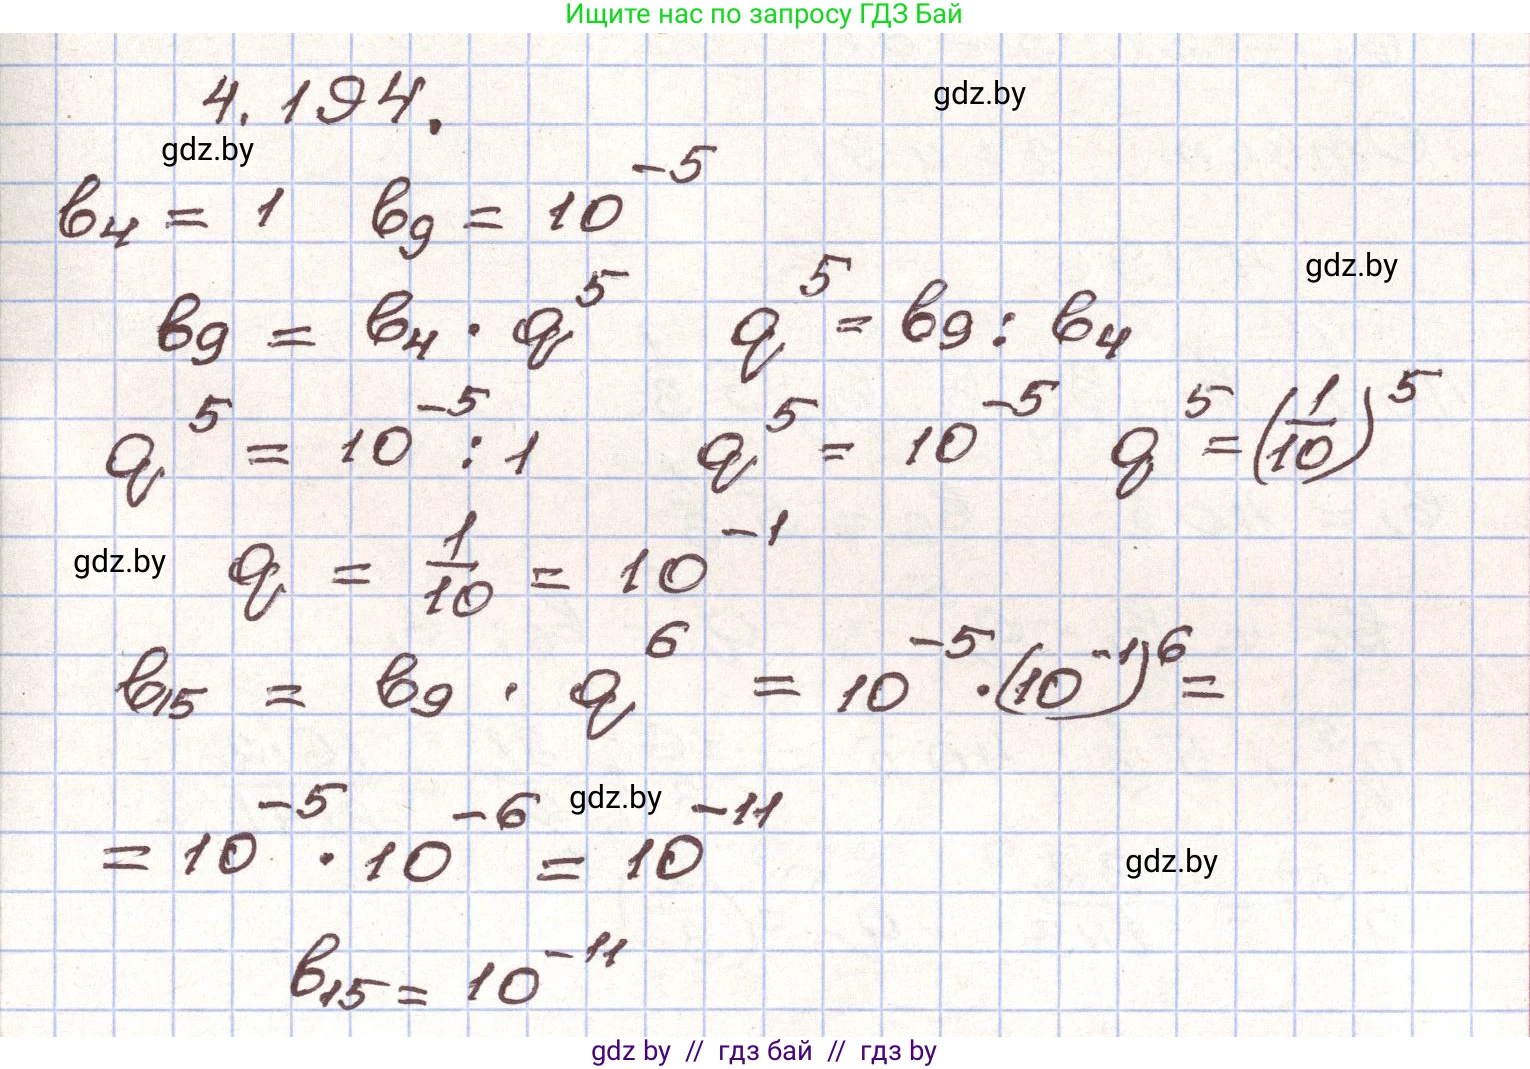 Ищите нас по запросу ГДЗ Бай
4.194.
gdz.by
gdz.by
в₄ = 1 в₉ = 10⁻⁵
gdz.by
в₉ = в₄ · q⁵ q⁵ = в₉ : в₄
q⁵ = 10⁻⁵ : 1 q⁵ = 10⁻⁵ q⁵ = (1/10)⁵
gdz.by
q = 1/10 = 10⁻¹
в₁₅ = в₉ · q⁶ = 10⁻⁵ · (10⁻¹)⁶ =
gdz.by
= 10⁻⁵ · 10⁻⁶ = 10⁻¹¹
gdz.by
в₁₅ = 10⁻¹¹
gdz by // гдз бай // гдз by